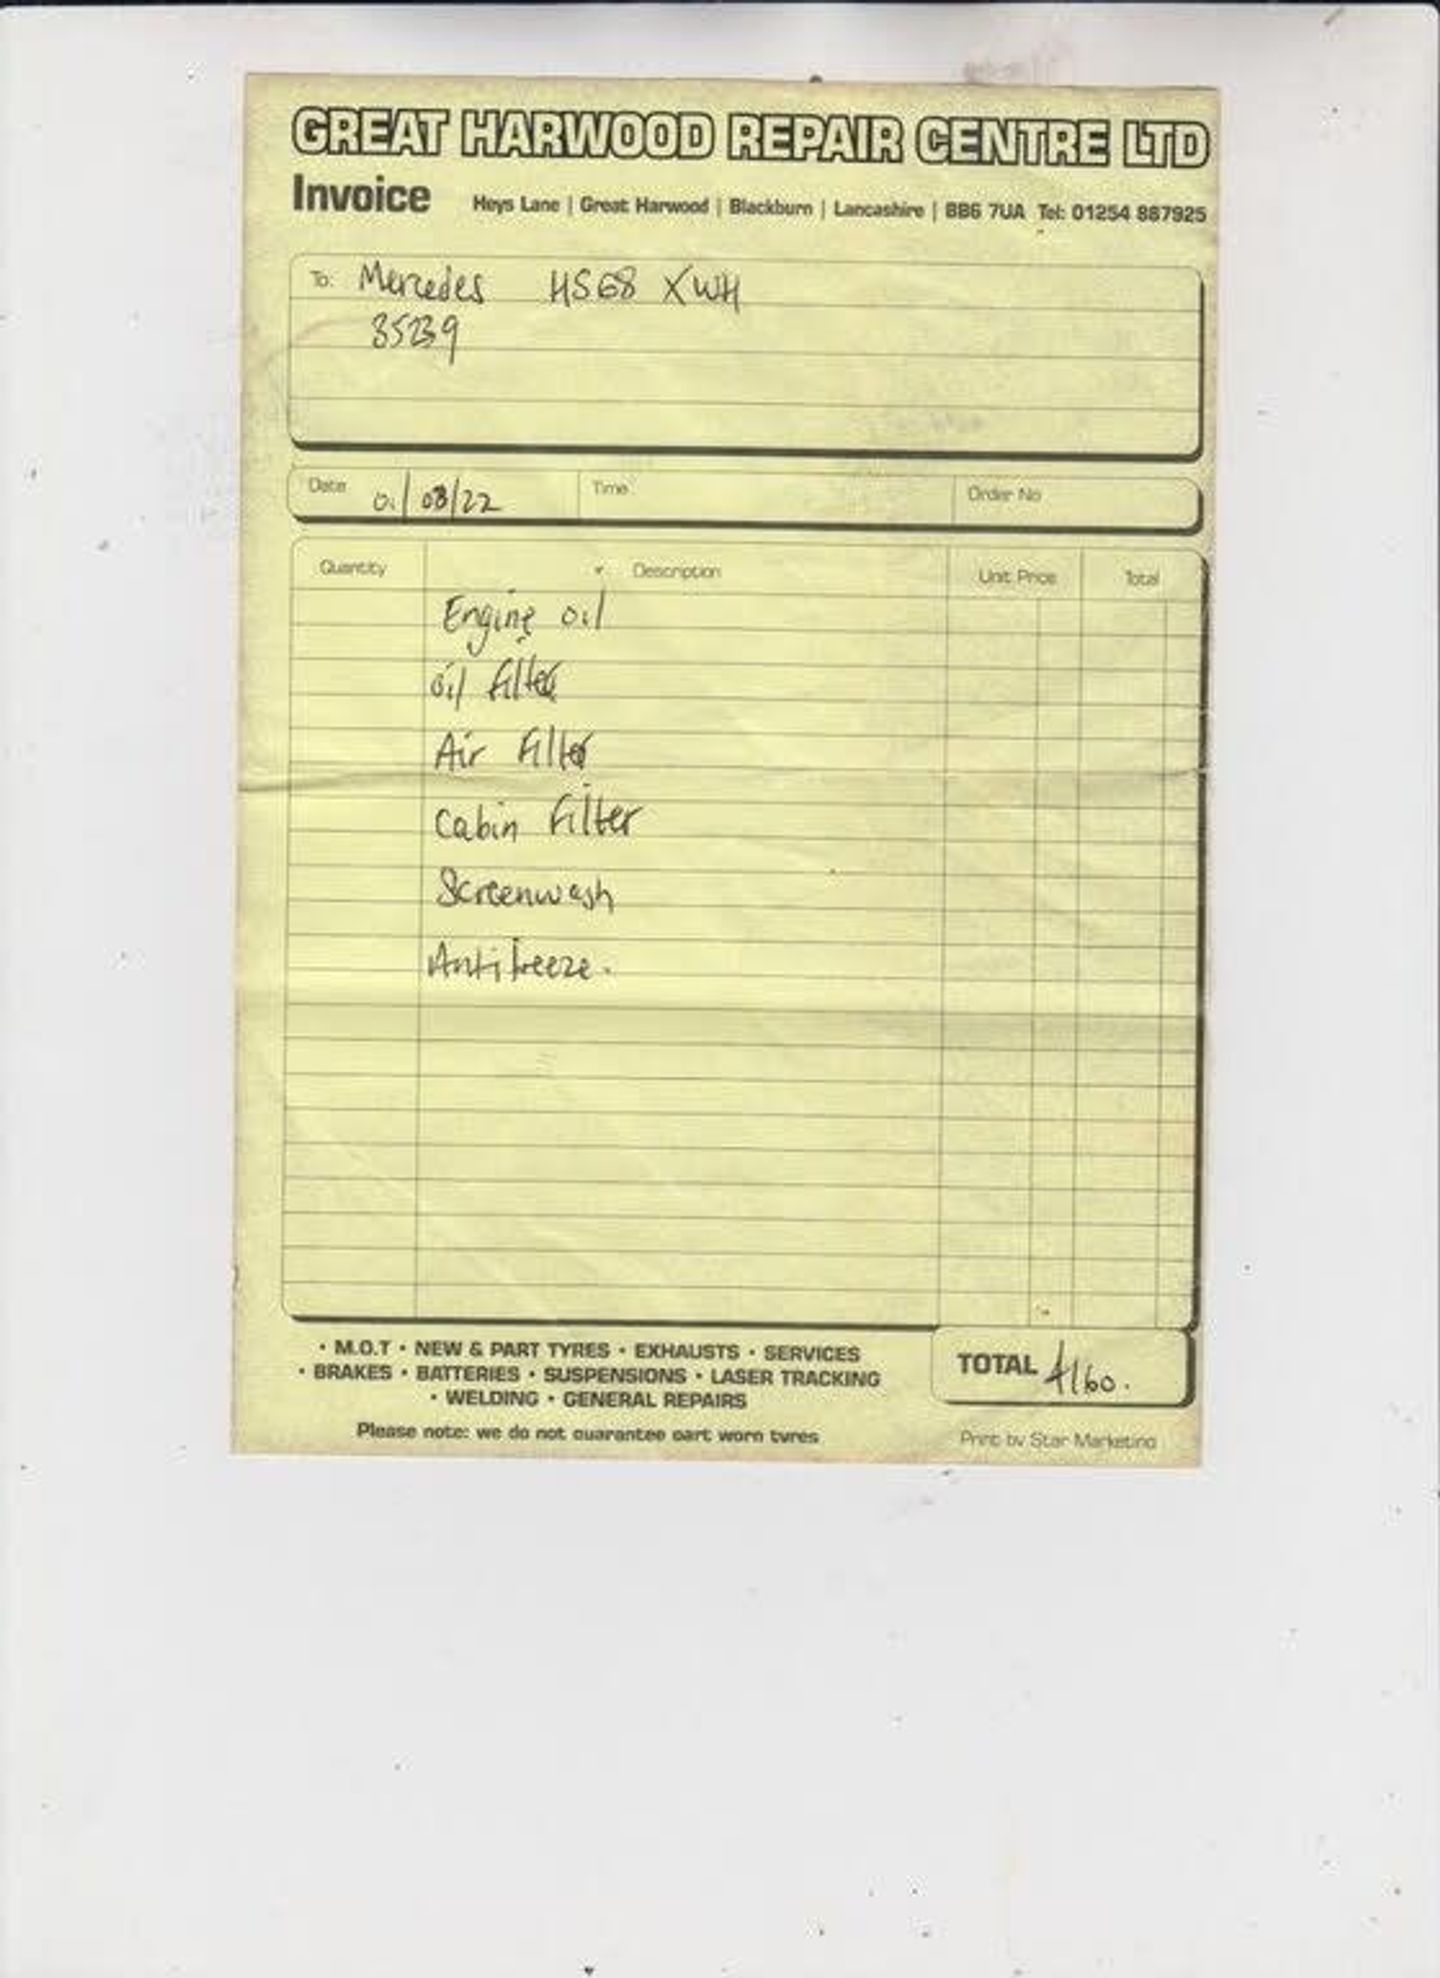 GREAT HARWOOD REPAIR CENTRE LTD
Invoice Heys Lane | Great Harwood | Blackburn | Lancashire | BB6 7UA Tel: 01254 887925
To: Mercedes HS68 XWH
35239
Date 01/08/22 Time Order No
Quantity Description Unit Price Total
Engine oil
oil filter
Air Filter
Cabin Filter
Screenwash
Antifreeze.
• M.O.T • NEW & PART TYRES • EXHAUSTS • SERVICES
• BRAKES • BATTERIES • SUSPENSIONS • LASER TRACKING
• WELDING • GENERAL REPAIRS
TOTAL £160.
Please note: we do not guarantee part worn tyres
Print by Star Marketing